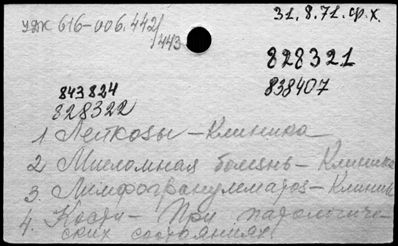 удк 616-006.442/443
31.8.71.ф.х.
828321
838407
843824
828322
1 Лейкозы - Клиника
2 Миеломная болезнь - Клиника
3. Лимфогранулематоз - Клиник
4. Кости - При патологиче-
ских состояниях